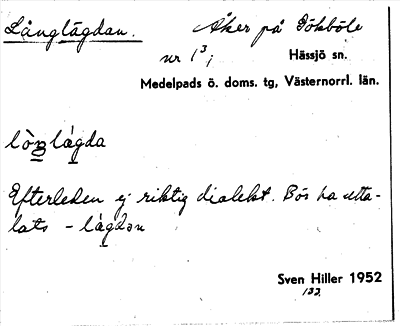 Långlägdan. Åker på Gökböle
nr 1³; Hässjö sn.
Medelpads ö. doms. tg, Västernorrl. län.
lòŋlágda
Efterleden ej riktig dialekt. Bös ha utta-
lats - lágdan
Sven Hiller 1952
133.